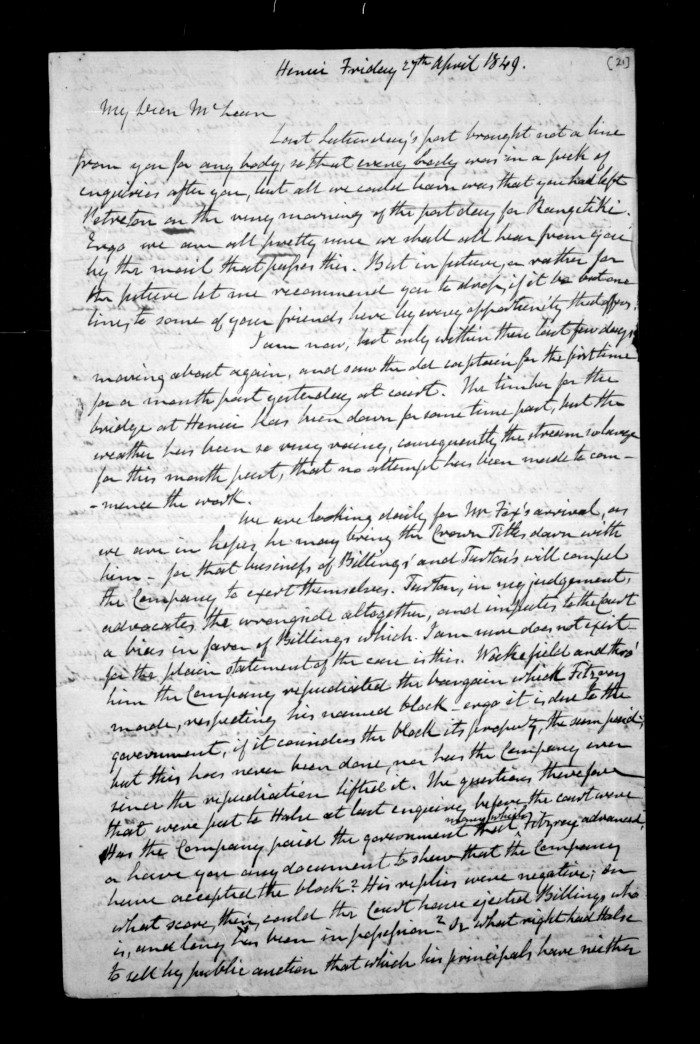 Henui Friday 27th April 1849.
(20)
My Dear McLean
Last Saturday's post brought not a line
from you for any body, so that every body was in a peck of
enquiries after you, but all we could learn was that you had left
Petreton on the very morning of the post day for Rangitiki.
Ergo we are all pretty sure we shall all hear from you
by the mail that passes this. But in future, or rather for
the future let me recommend you to drop, if it be but one
line, to some of your friends here by every opportunity that offers.
I am now, but only within these last few days,
moving about again, and saw the old captain for the first time
for a month past yesterday at court. The timber for the
bridge at Henui has been down for some time past, but the
weather has been so very rainy, consequently the stream so large
for this month past, that no attempt has been made to com-
-mence the work.
We are looking daily for Mr Fox's arrival, as
we are in hopes he may bring the Crown Titles down with
him - for that business of Billings' and Turton's will compel
the Company to exert themselves. Turton, in my judgement,
advocates the wrong side altogether, and imputes to the Court
a bias in favor of Billings which I am sure does not exist
for the plain statement of the case is this. Wakefield and thro'
him the Company repudiated the bargain which Fitzroy
made, respecting his named block - ergo it is due to the
government, if it considers the block its property, the sum paid;
but this has never been done, nor has the Company ever
since the repudiation lifted it. The questions therefore
that were put to Halse at last enquire, before the court were
Has the Company paid the government money which Fitzroy advanced,
or have you any document to shew that the Company
have accepted the block? His replies were negative; on
what score, then, could the Court have ejected Billings who
is, and long has been in possession? Or what right had Halse
to sell by public auction that which his principals have neither